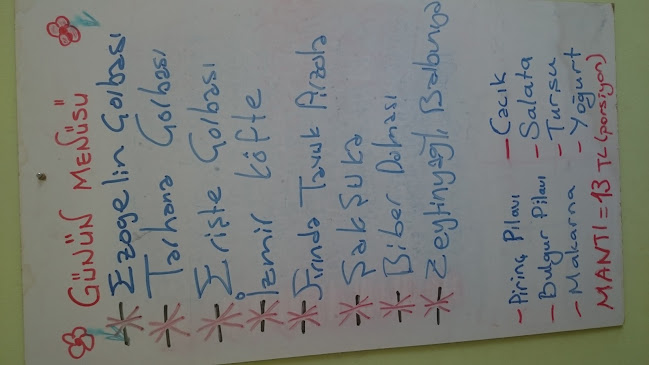 GÜNÜN MENÜSÜ
Ezogelin Çorbası
Tarhana Çorbası
Erişte Çorbası
İzmir Köfte
Fırında Tavuk Pirzola
Şakşuka
Biber Dolması
Zeytinyağlı Barbunya
- Pirinç Pilavı - Cacık
- Bulgur Pilavı - Salata
- Makarna - Turşu
- Yoğurt
MANTI = 13 TL (porsiyon)